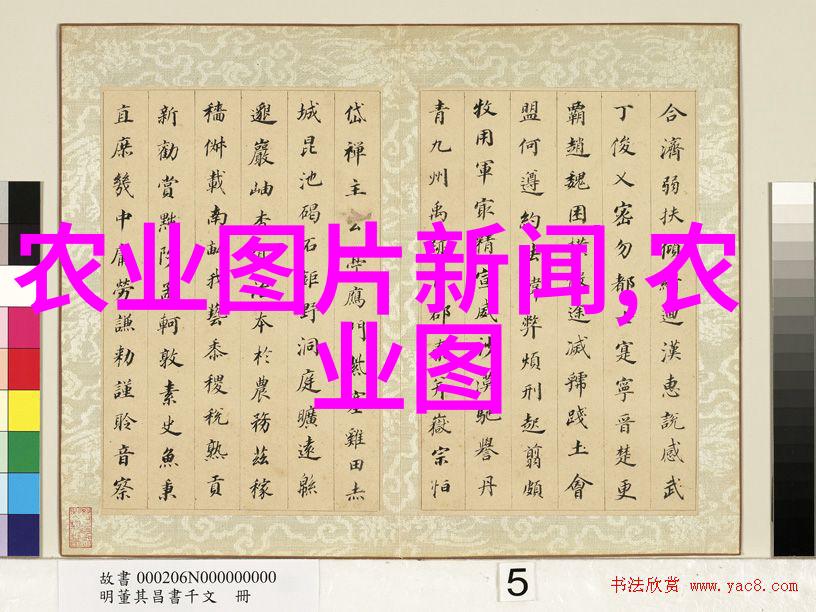 农业图片新闻,农
业图
合濟弱扶傾綺迴漢惠說感武
丁俊乂密勿士寔寧晉楚更
霸趙魏困橫假途滅虢踐土會
盟何遵約法韓弊煩刑起翦頗
牧用軍最精宣威沙漠馳譽丹
青九州禹郡秦并嶽宗恒
岱禪主云亭鴈門紫塞雞田赤
城昆池碣石鉅野洞庭曠遠緜
邈巖岫杳冥治本於農務茲稼
穡俶載南畝我藝黍稷稅熟貢
新勸賞黜陟孟軻敦素史魚秉
直庶幾中庸勞謙勅謹聆音察
故書 000206N000000000
明董其昌書千文 冊
5
书法欣赏 www.yac8.com